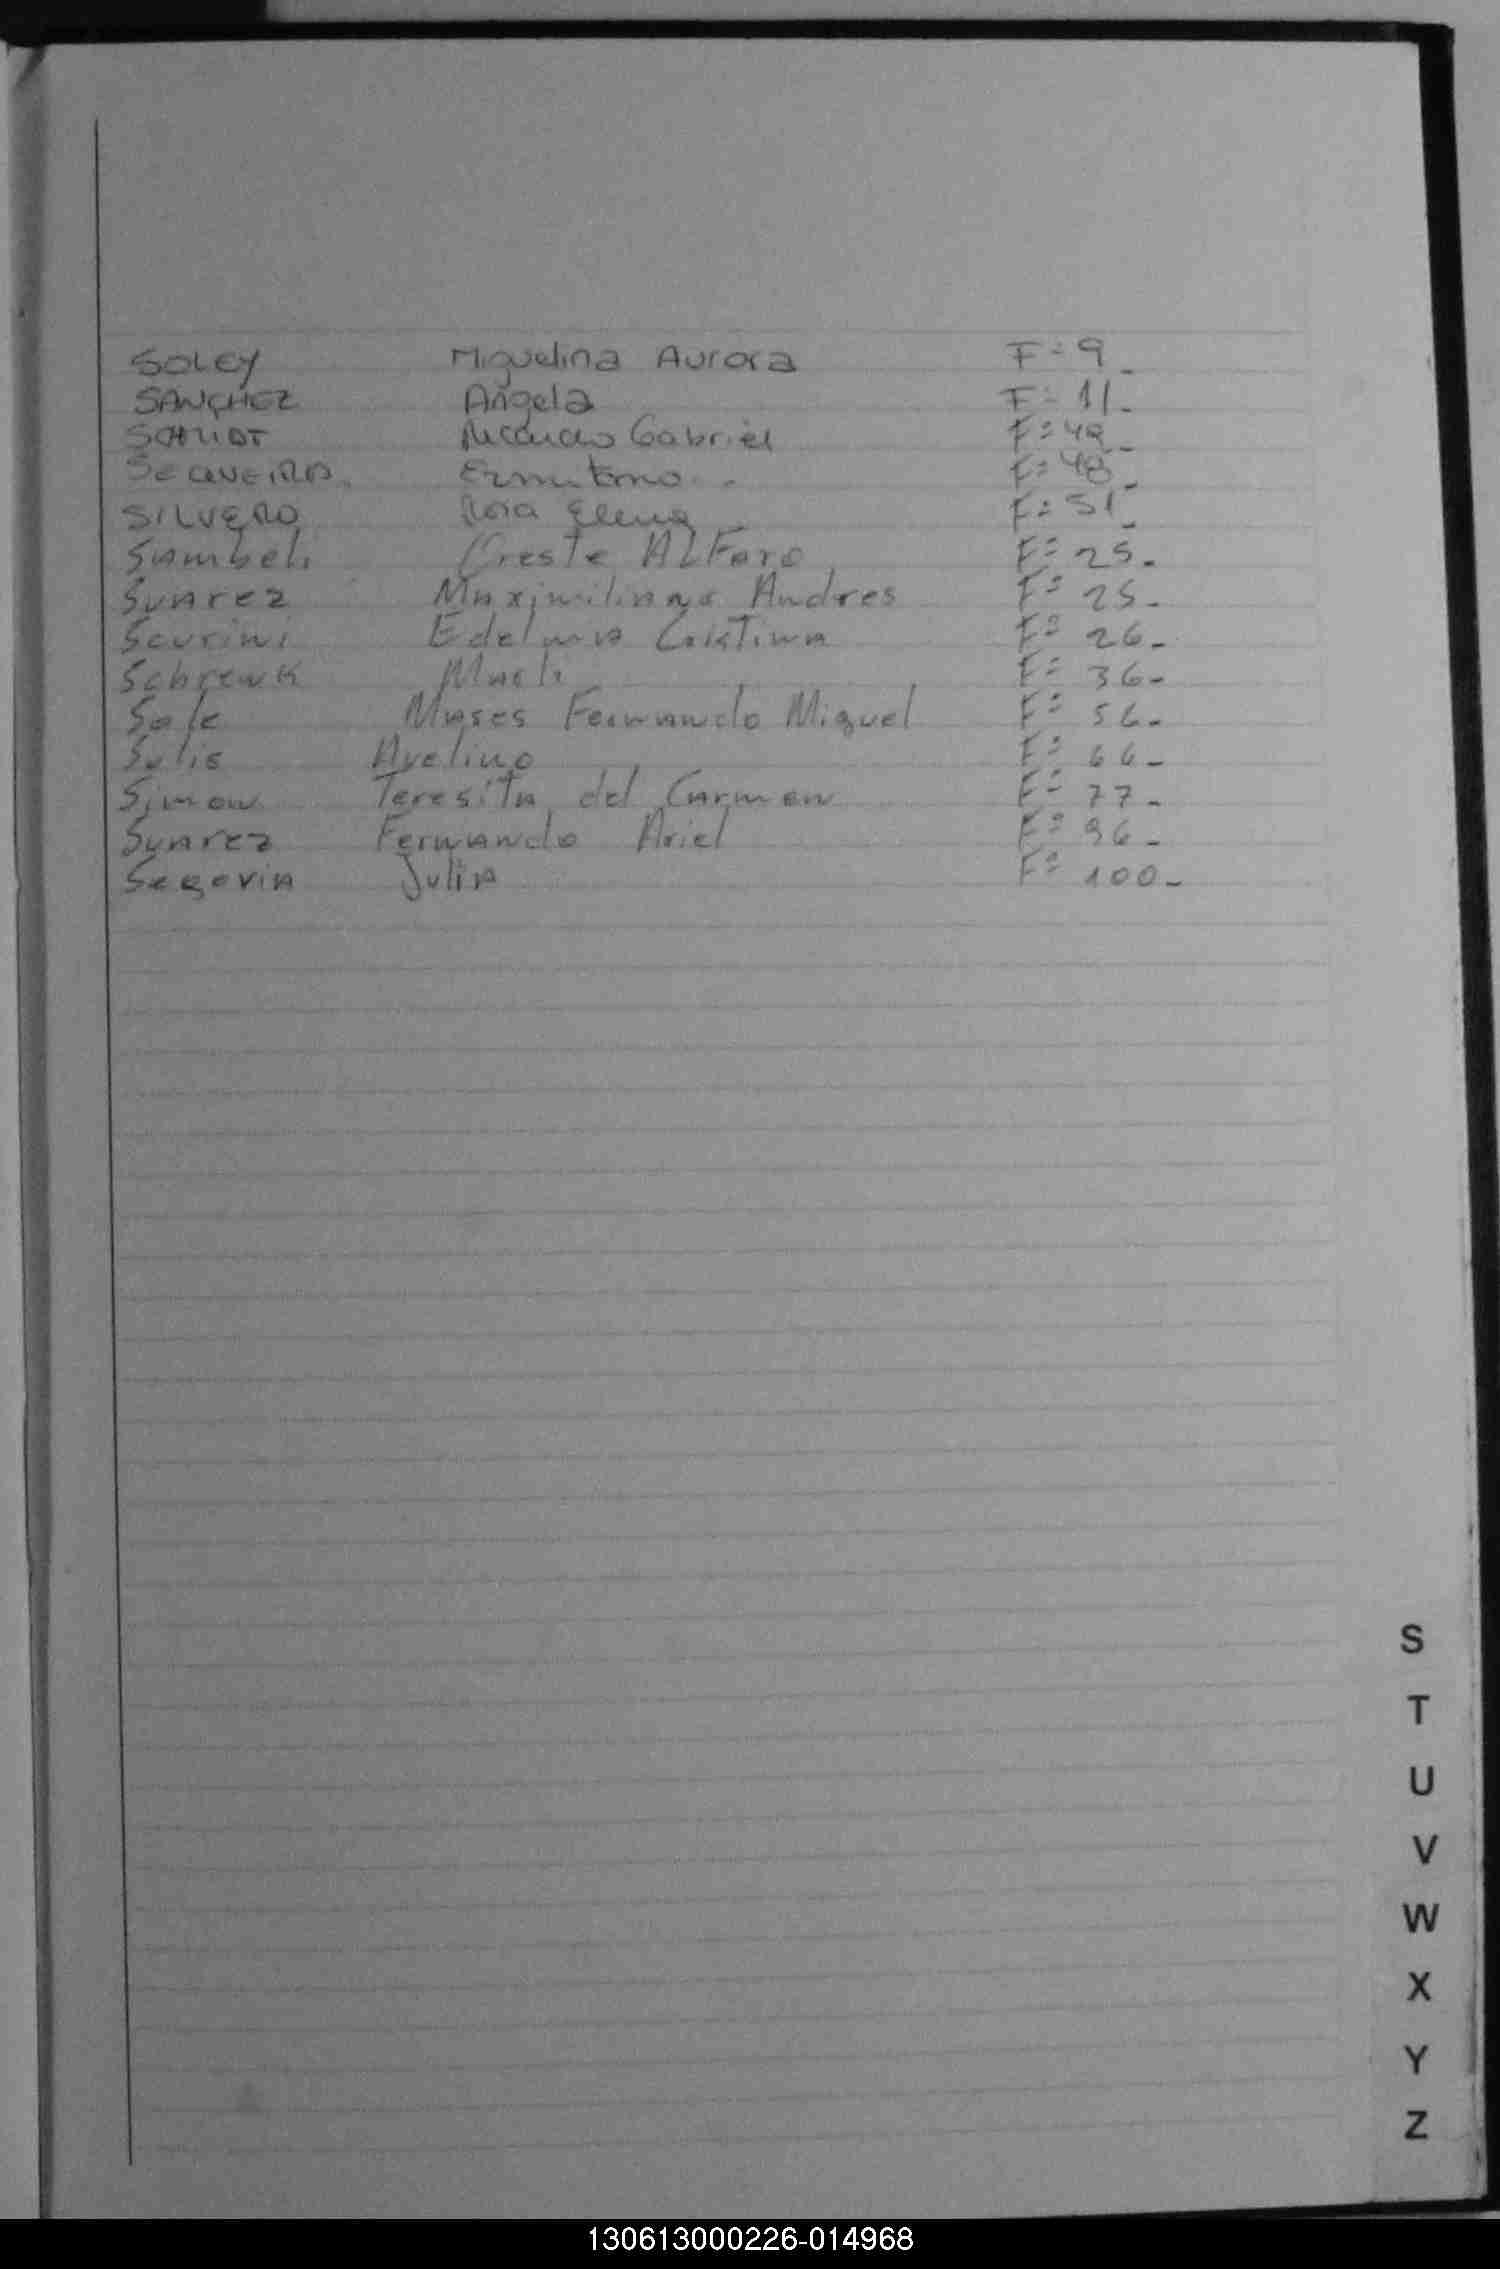 SOLEY Miguelina Aurora F=9_
SANCHEZ Angela F=11_
SCHMIDT Ricardo Gabriel F=42_
SEQUEIRA F=48_
SILVERO Rosa Elena F=51_
Sambeli Oreste ALFaro F= 25_
Suarez Maximiliano Andres F= 25_
Sourini Edelma Cristina F= 26_
Sobrewk F= 36_
Sole Moses Fernando Miguel F= 56_
Solis Avelino F= 66_
Simon Teresita del Carmen F= 77_
Suarez Fernando Ariel F= 96_
Segovia Julia F= 100_
S
T
U
V
W
X
Y
Z
130613000226-014968